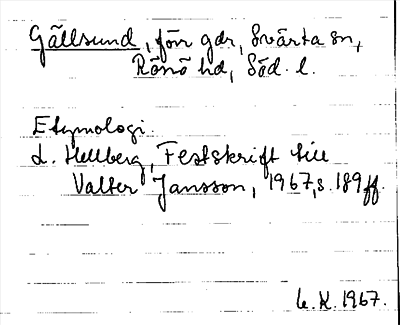 Gällsund, förr gdr, Svärta sn,
Rönö hd, Söd. l.
Etymologi.
L. Hellberg, Festskrift till
Valter Jansson, 1967, s. 189 ff.
K. 1967.